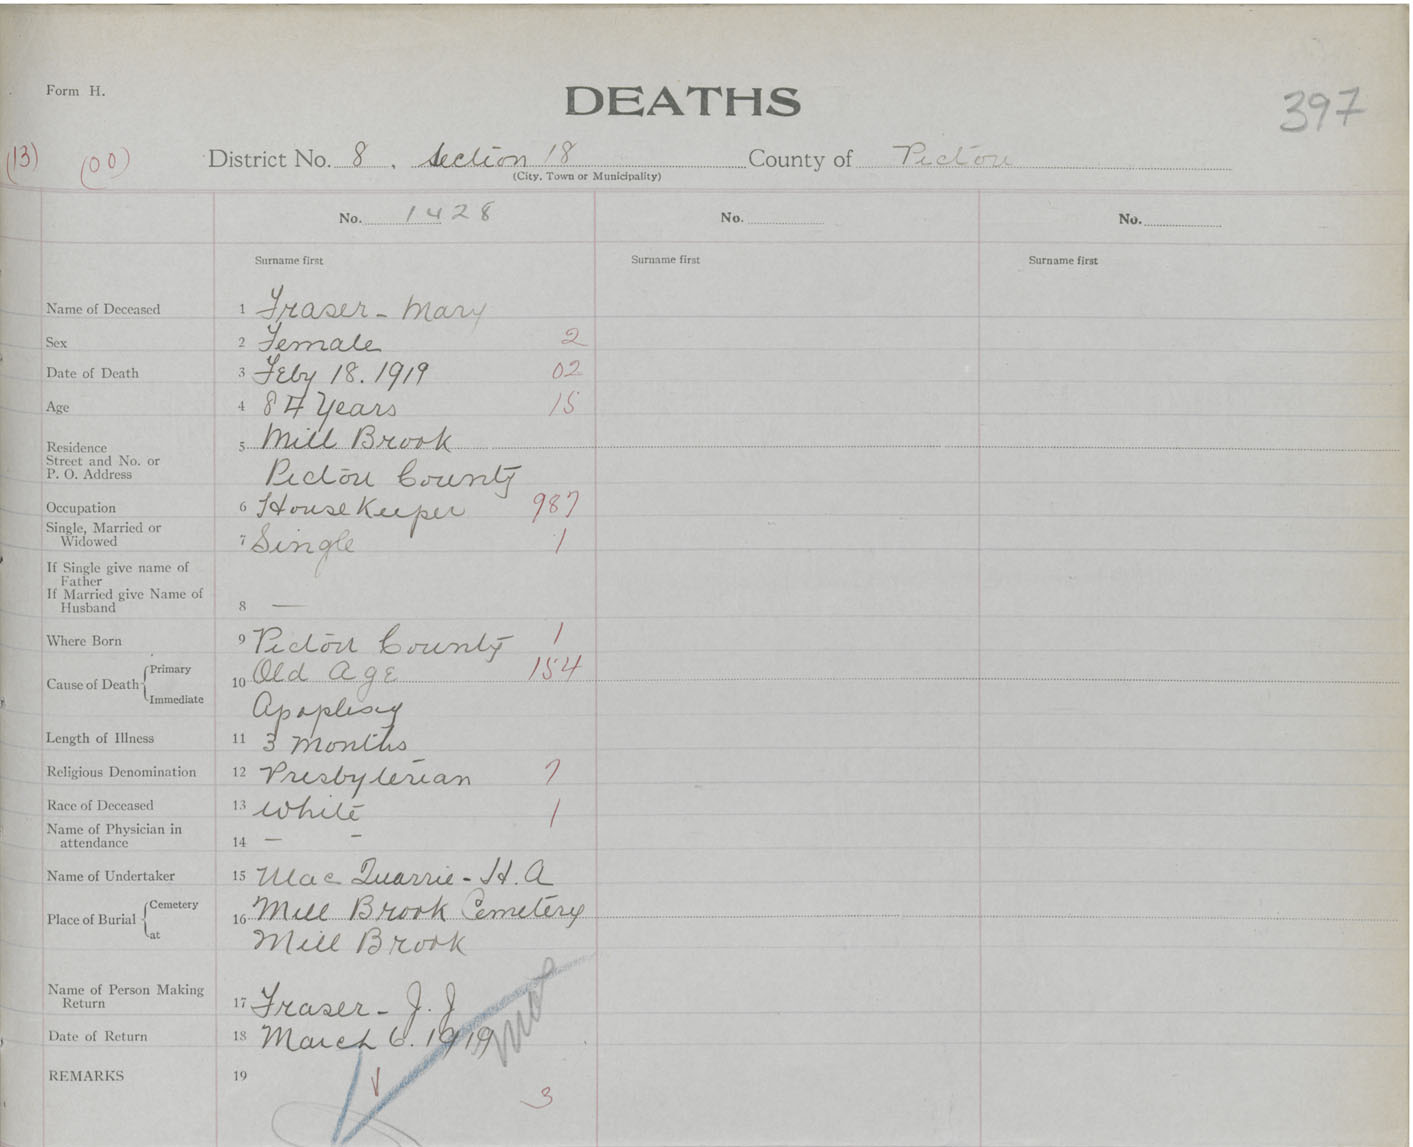 Form H.
DEATHS
397
(13) (00) District No. 8, Section 18 County of Pictou
(City, Town or Municipality)
No. 1428 No. No.
Surname first Surname first Surname first
Name of Deceased 1 Fraser - Mary
Sex 2 Female 2
Date of Death 3 Feby 18. 1919 02
Age 4 84 Years 15
Residence 5 Mill Brook
Street and No. or
P. O. Address Pictou County
Occupation 6 House Keeper 987
Single, Married or
Widowed 7 Single 1
If Single give name of
Father
If Married give Name of
Husband 8 —
Where Born 9 Pictou County 1
Cause of Death Primary 10 Old Age 154
Immediate Apoplexy
Length of Illness 11 3 months
Religious Denomination 12 Presbyterian 7
Race of Deceased 13 White 1
Name of Physician in
attendance 14 — -
Name of Undertaker 15 Mac Quarrie - H. A
Place of Burial Cemetery 16 Mill Brook Cemetery
at Mill Brook
Name of Person Making
Return 17 Fraser - J. J
Date of Return 18 March 6. 1919
REMARKS 19
3